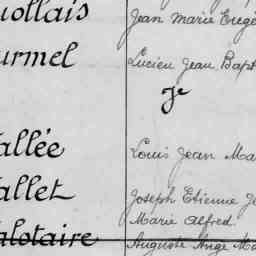 iollais Jean Marie Eugè
urmel Lucien Jean Bapt
Je
allée Louis Jean Ma
allet Joseph Etienne Je
Marie Alfred
alotaire Auguste Ange Ma